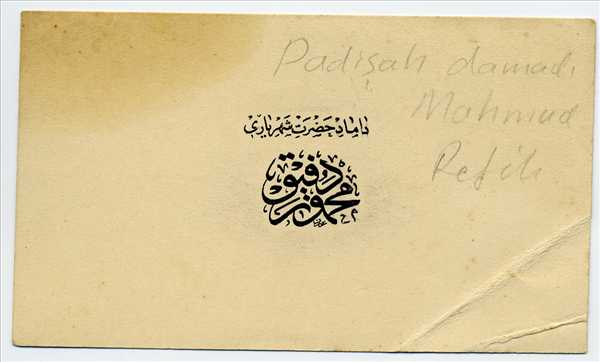 Padişah damadı
Mahmud
Refik
داماد حضرت شهریاری
محمود رفیق